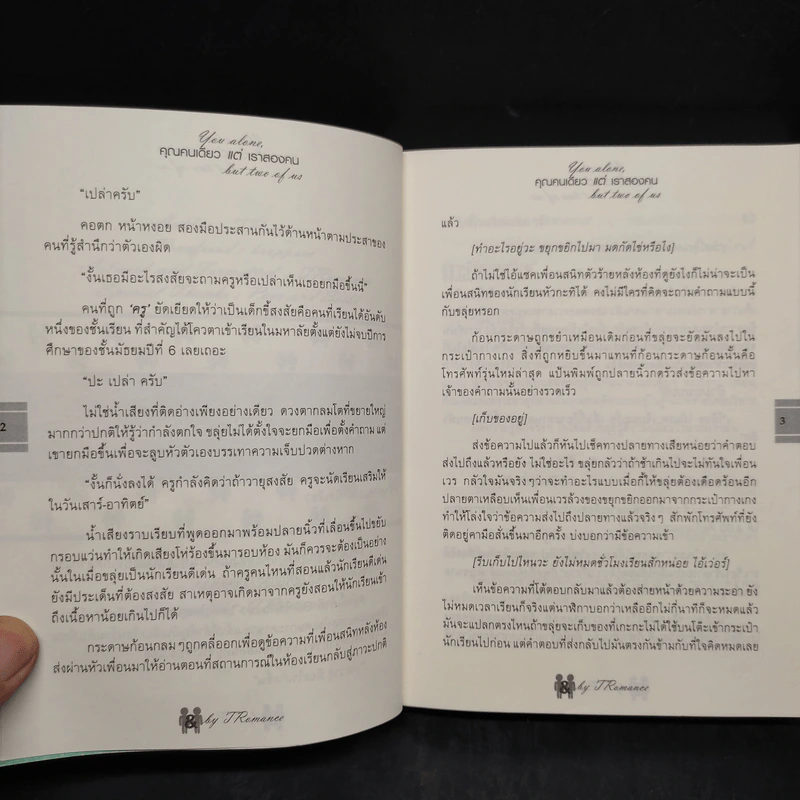 You alone,
คุณคนเดียว แต่ เราสองคน
but two of us
“เปล่าครับ”
คอตก หน้าหงอย สองมือประสานกันไว้ด้านหน้าตามประสาของ
คนที่รู้สำนึกว่าตัวเองผิด
“งั้นเธอมีอะไรสงสัยจะถามครูหรือเปล่าเห็นเธอยกมือขึ้นนี่”
คนที่ถูก ‘ครู’ ยัดเยียดให้ว่าเป็นเด็กขี้สงสัยคือคนที่เรียนได้อันดับ
หนึ่งของชั้นเรียน ที่สำคัญได้โควตาเข้าเรียนในมหาลัยตั้งแต่ยังไม่จบปีการ
ศึกษาของชั้นมัธยมปีที่ 6 เลยเถอะ
“ปะ เปล่า ครับ”
ไม่ใช่น้ำเสียงที่ติดอ่างเพียงอย่างเดียว ดวงตากลมโตที่ขยายใหญ่
มากกว่าปกติให้รู้ว่ากำลังตกใจ ขลุ่ยไม่ได้ตั้งใจจะยกมือเพื่อตั้งคำถาม แต่
เขายกมือขึ้นเพื่อจะลูบหัวตัวเองบรรเทาความเจ็บปวดต่างหาก
“งั้นก็นั่งลงได้ ครูกำลังคิดว่าถ้าวายุสงสัย ครูจะนัดเรียนเสริมให้
ในวันเสาร์-อาทิตย์”
น้ำเสียงราบเรียบที่พูดออกมาพร้อมปลายนิ้วที่เลื่อนขึ้นไปขยับ
กรอบแว่นทำให้เกิดเสียงโห่ร้องขึ้นมารอบห้อง มันก็ควรจะต้องเป็นอย่าง
นั้นในเมื่อขลุ่ยเป็นนักเรียนดีเด่น ถ้าครูคนไหนที่สอนแล้วนักเรียนดีเด่น
ยังมีประเด็นที่ต้องสงสัย สาเหตุอาจเกิดมาจากครูยังสอนให้นักเรียนเข้า
ถึงเนื้อหาน้อยเกินไปก็ได้
กระดาษก้อนกลมๆถูกคลี่ออกเพื่อดูข้อความที่เพื่อนสนิทหลังห้อง
ส่งผ่านหัวเพื่อนมาให้อ่านตอนที่สถานการณ์ในห้องเรียนกลับสู่ภาวะปกติ
2
& by TRomance
You alone,
คุณคนเดียว แต่ เราสองคน
but two of us
แล้ว
[ทำอะไรอยู่วะ ขยุกขยิกไปมา มดกัดไข่หรือไง]
ถ้าไม่ใช่ไอ้แซคเพื่อนสนิทตัวร้ายหลังห้องที่ดูยังไงก็ไม่น่าจะเป็น
เพื่อนสนิทของนักเรียนหัวกะทิได้ คงไม่มีใครที่คิดจะถามคำถามแบบนี้
กับขลุ่ยหรอก
ก้อนกระดาษถูกขยำเหมือนเดิมก่อนที่ขลุ่ยจะยัดมันลงไปใน
กระเป๋ากางเกง สิ่งที่ถูกหยิบขึ้นมาแทนที่ก้อนกระดาษก้อนนั้นคือ
โทรศัพท์รุ่นใหม่ล่าสุด แป้นพิมพ์ถูกปลายนิ้วกดรัวส่งข้อความไปหา
เจ้าของคำถามนั้นอย่างรวดเร็ว
[เก็บของอยู่]
ส่งข้อความไปแล้วก็หันไปเช็คทางปลายทางเสียหน่อยว่าคำตอบ
ส่งไปถึงแล้วหรือยัง ไม่ใช่อะไร ขลุ่ยกลัวว่าถ้าช้าเกินไปจะไม่ทันใจเพื่อน
เวร กลัวใจมันจริงๆว่าจะทำอะไรแบบเมื่อกี้ให้ขลุ่ยต้องเดือดร้อนอีก
ปลายตาเหลือบเห็นเพื่อนเวรล้วงของขยุกขยิกออกมาจากกระเป๋ากางเกง
ทำให้โล่งใจว่าข้อความส่งไปถึงปลายทางแล้วจริงๆ สักพักโทรศัพท์ที่ยัง
ติดอยู่คามือสั่นขึ้นมาอีกครั้ง บ่งบอกว่ามีข้อความเข้า
[รีบเก็บไปไหนวะ ยังไม่หมดชั่วโมงเรียนสักหน่อย ไอ้เว่อร์]
เห็นข้อความที่โต้ตอบกลับมาแล้วต้องส่ายหน้าด้วยความระอา ยัง
ไม่หมดเวลาเรียนก็จริงแต่นาฬิกาบอกว่าเหลืออีกไม่กี่นาทีก็จะหมดแล้ว
มันจะแปลกตรงไหนถ้าขลุ่ยจะเก็บของที่เกะกะไม่ได้ใช้บนโต๊ะเข้ากระเป๋า
นักเรียนไปก่อน แต่คำตอบที่ส่งกลับไปมันตรงกันข้ามกับที่ใจคิดหมดเลย
3
& by TRomance